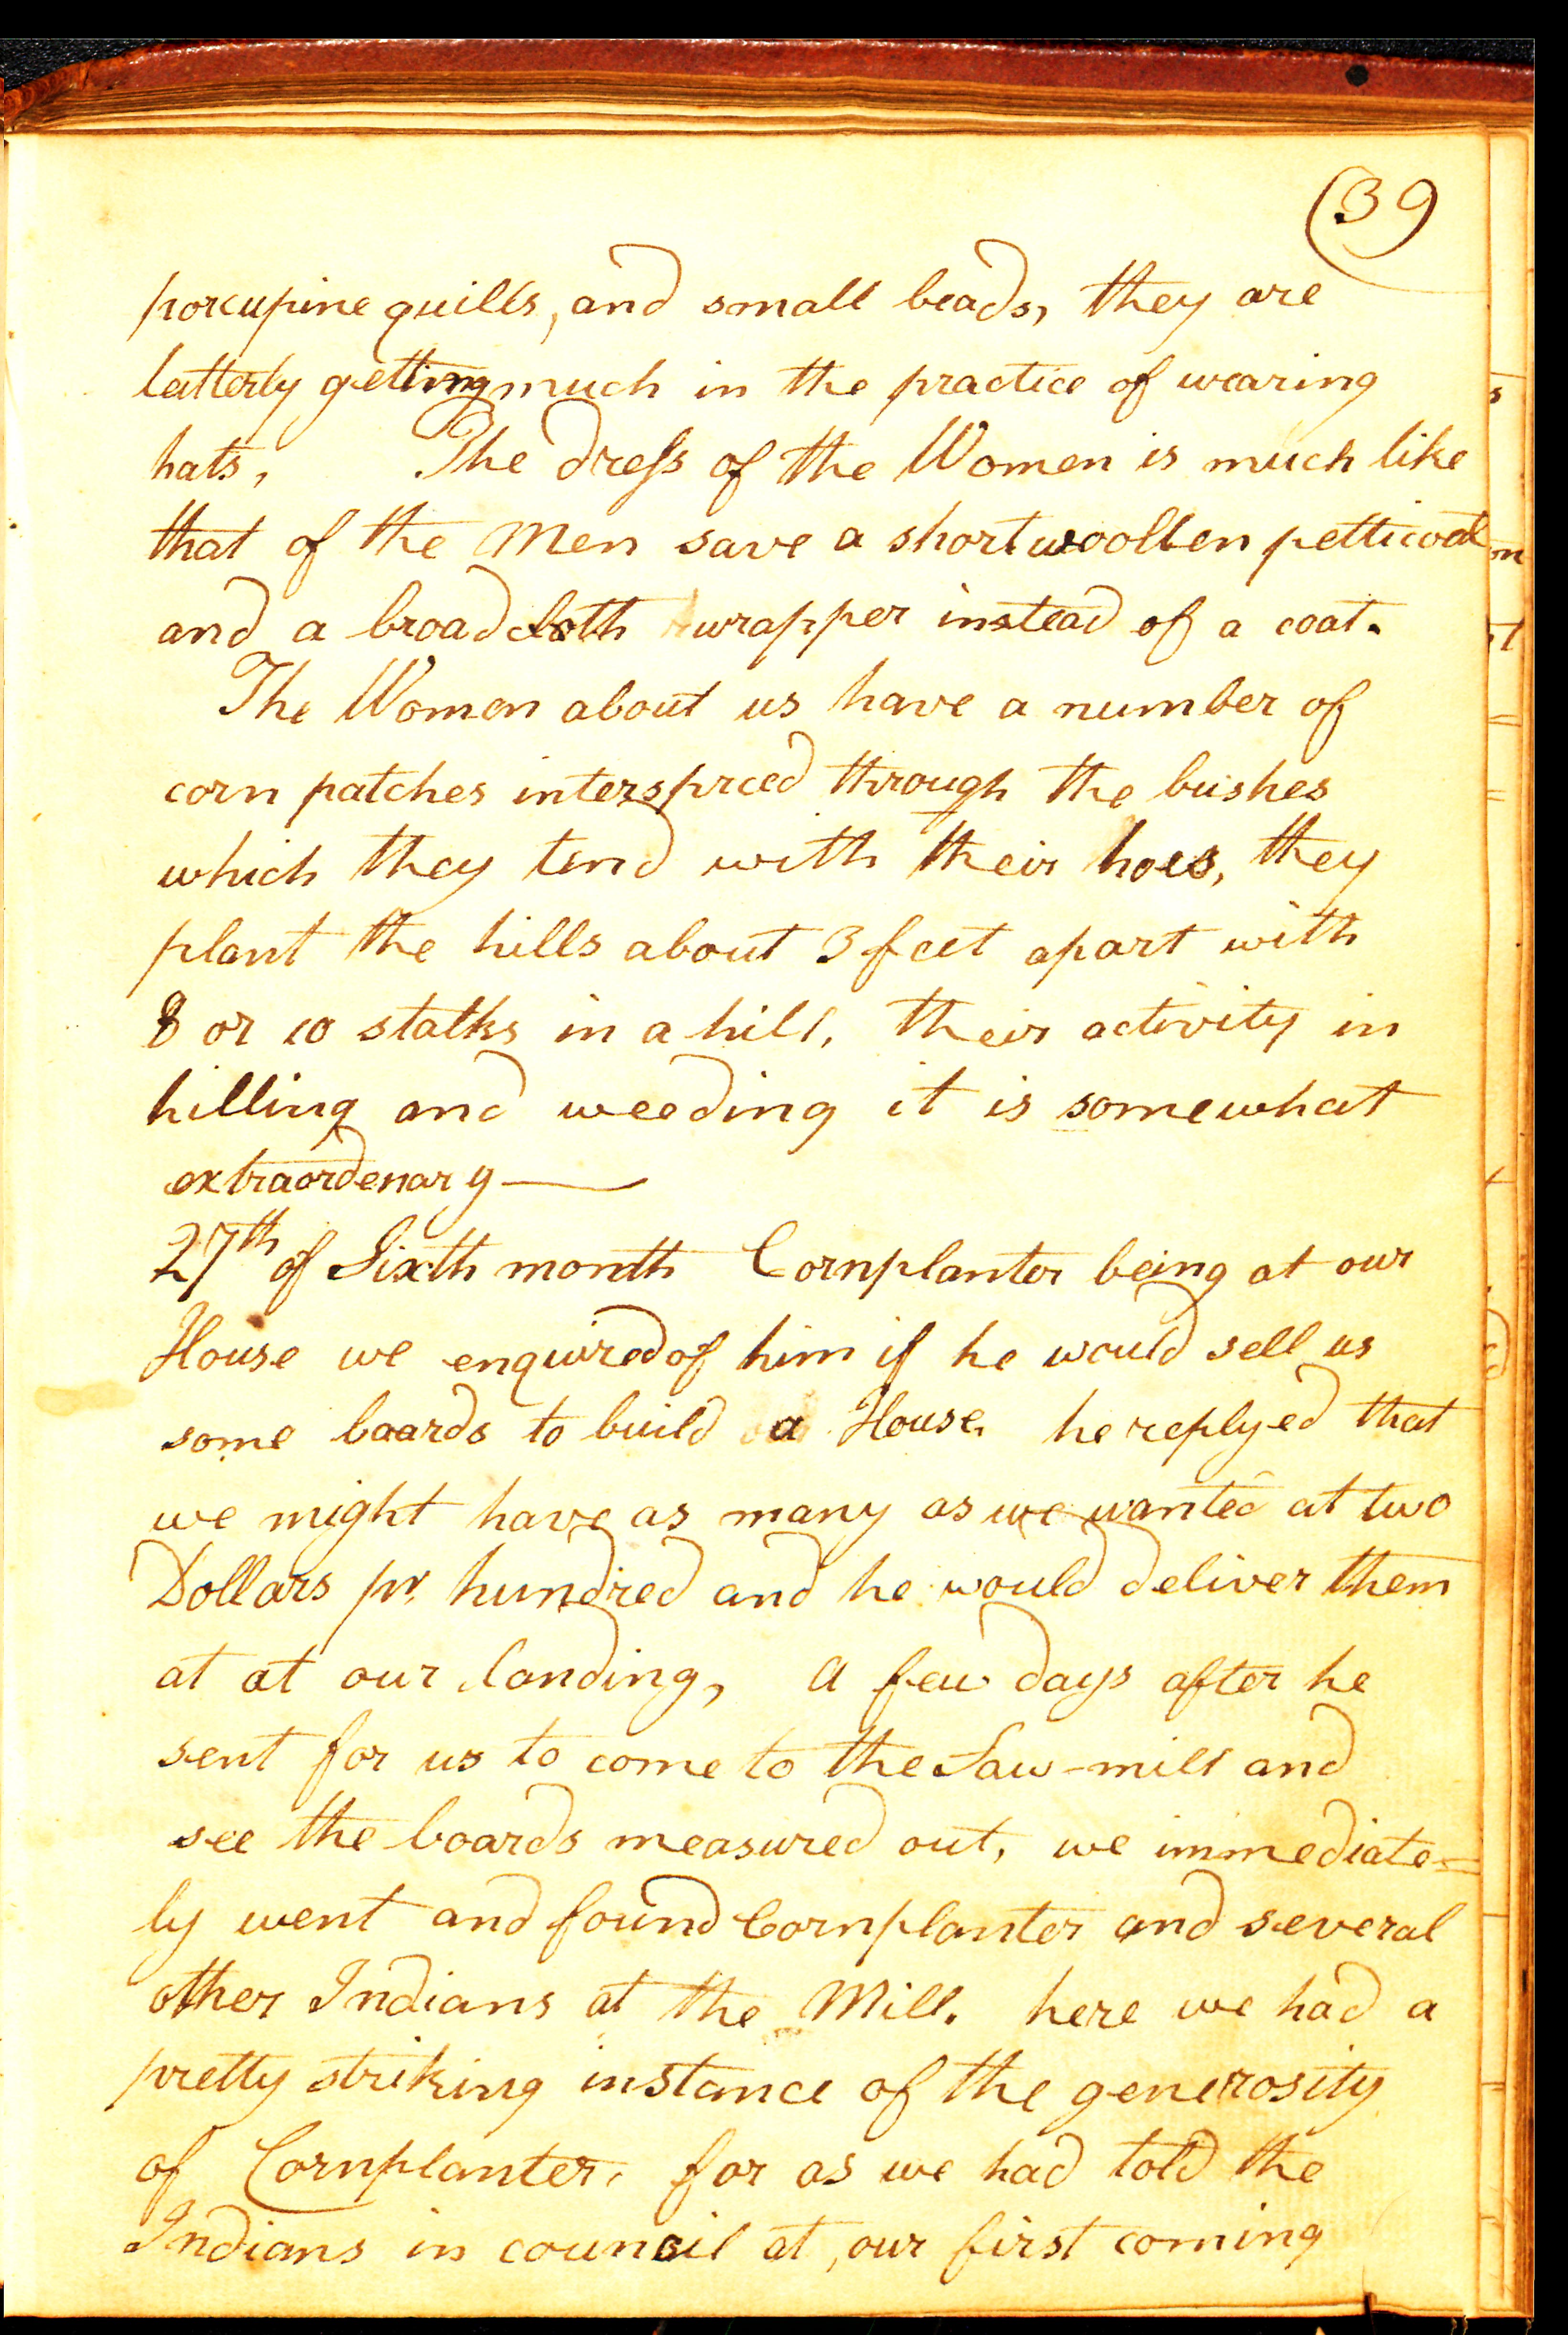 (39)
porcupine quills, and small beads, they are
latterly getting much in the practice of wearing
hats, The dress of the Women is much like
that of the Men save a short woollen petticoat
and a broad cloth wrapper instead of a coat.
The Women about us have a number of
corn patches intersprced through the bushes
which they tend with their hoes, they
plant the hills about 3 feet apart with
8 or 10 stalks in a hill, their activity in
hilling and weeding it is somewhat
extraordenary —
27th of Sixth month Cornplanter being at our
House we enquired of him if he would sell us
some boards to build a House. he replyed that
we might have as many as we wanted at two
Dollars pr. hundred and he would deliver them
at at our landing, A few days after he
sent for us to come to the Saw-mill and
see the boards measured out, we immediate=
ly went and found Cornplanter and several
other Indians at the Mill. here we had a
pretty striking instance of the generosity
of Cornplanter, for as we had told the
Indians in council at our first coming